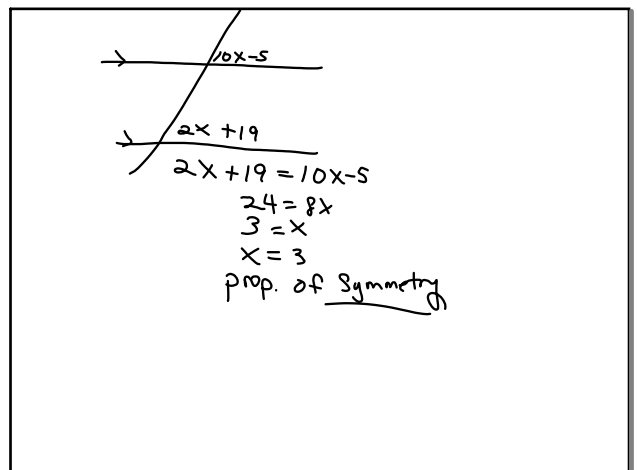 10x-5
2x +19
2x+19 = 10x-5
24 = 8x
3 = x
x = 3
prop. of Symmetry